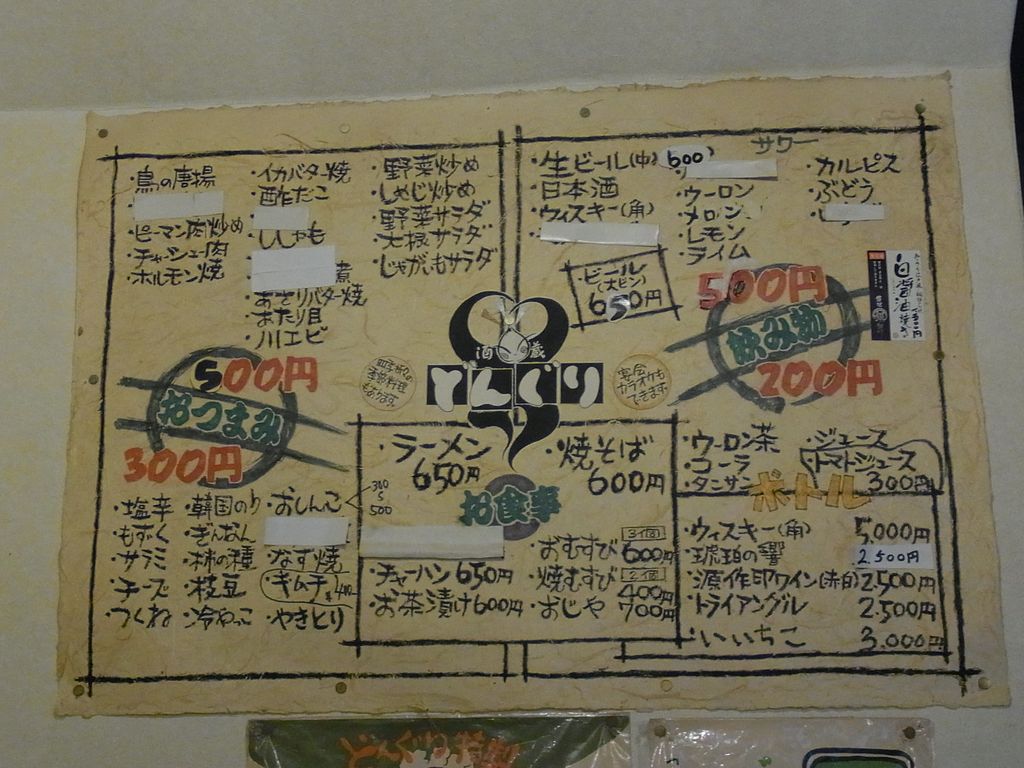 ・鳥の唐揚
・ピーマン肉炒め
・チャーシュー肉
・ホルモン焼
・イカバター焼
・酢だこ
・ししゃも
煮
・あさりバター焼
・ほたり貝
・川エビ
・野菜炒め
・しめじ炒め
・野菜サラダ
・大根サラダ
・じゃがいもサラダ
500円
おつまみ
300円
・塩辛
・もずく
・サラミ
・チーズ
・つくね
・韓国のり
・ぎんなん
・柿の種
・枝豆
・冷やっこ
・おしんこ
300
500
・なす焼
・キムチ 400
・やきとり
・生ビール(中) 600
・日本酒
・ウィスキー(角)
・ビール
(大ビン)
650円
サワー
・ウーロン
・メロン
・レモン
・ライム
・カルピス
・ぶどう
500円
飲み物
200円
白醤油
・ウーロン茶
・コーラ
・タンサン
・ジュース
・トマトジュース
300円
酒蔵
どんぐり
四季折々の
季節料理
もあります。
宴会
カラオケも
できます。
・ラーメン
650円
・焼そば
600円
お食事
・チャーハン 650円
・お茶漬け 600円
・おむすび 3個 600円
・焼むすび 2個 400円
・おじや 700円
ボトル
・ウィスキー(角) 5,000円
・琥珀の響 2.500円
・源作印ワイン(赤白) 2,500円
・トライアングル 2.500円
・いいちこ 3.000円